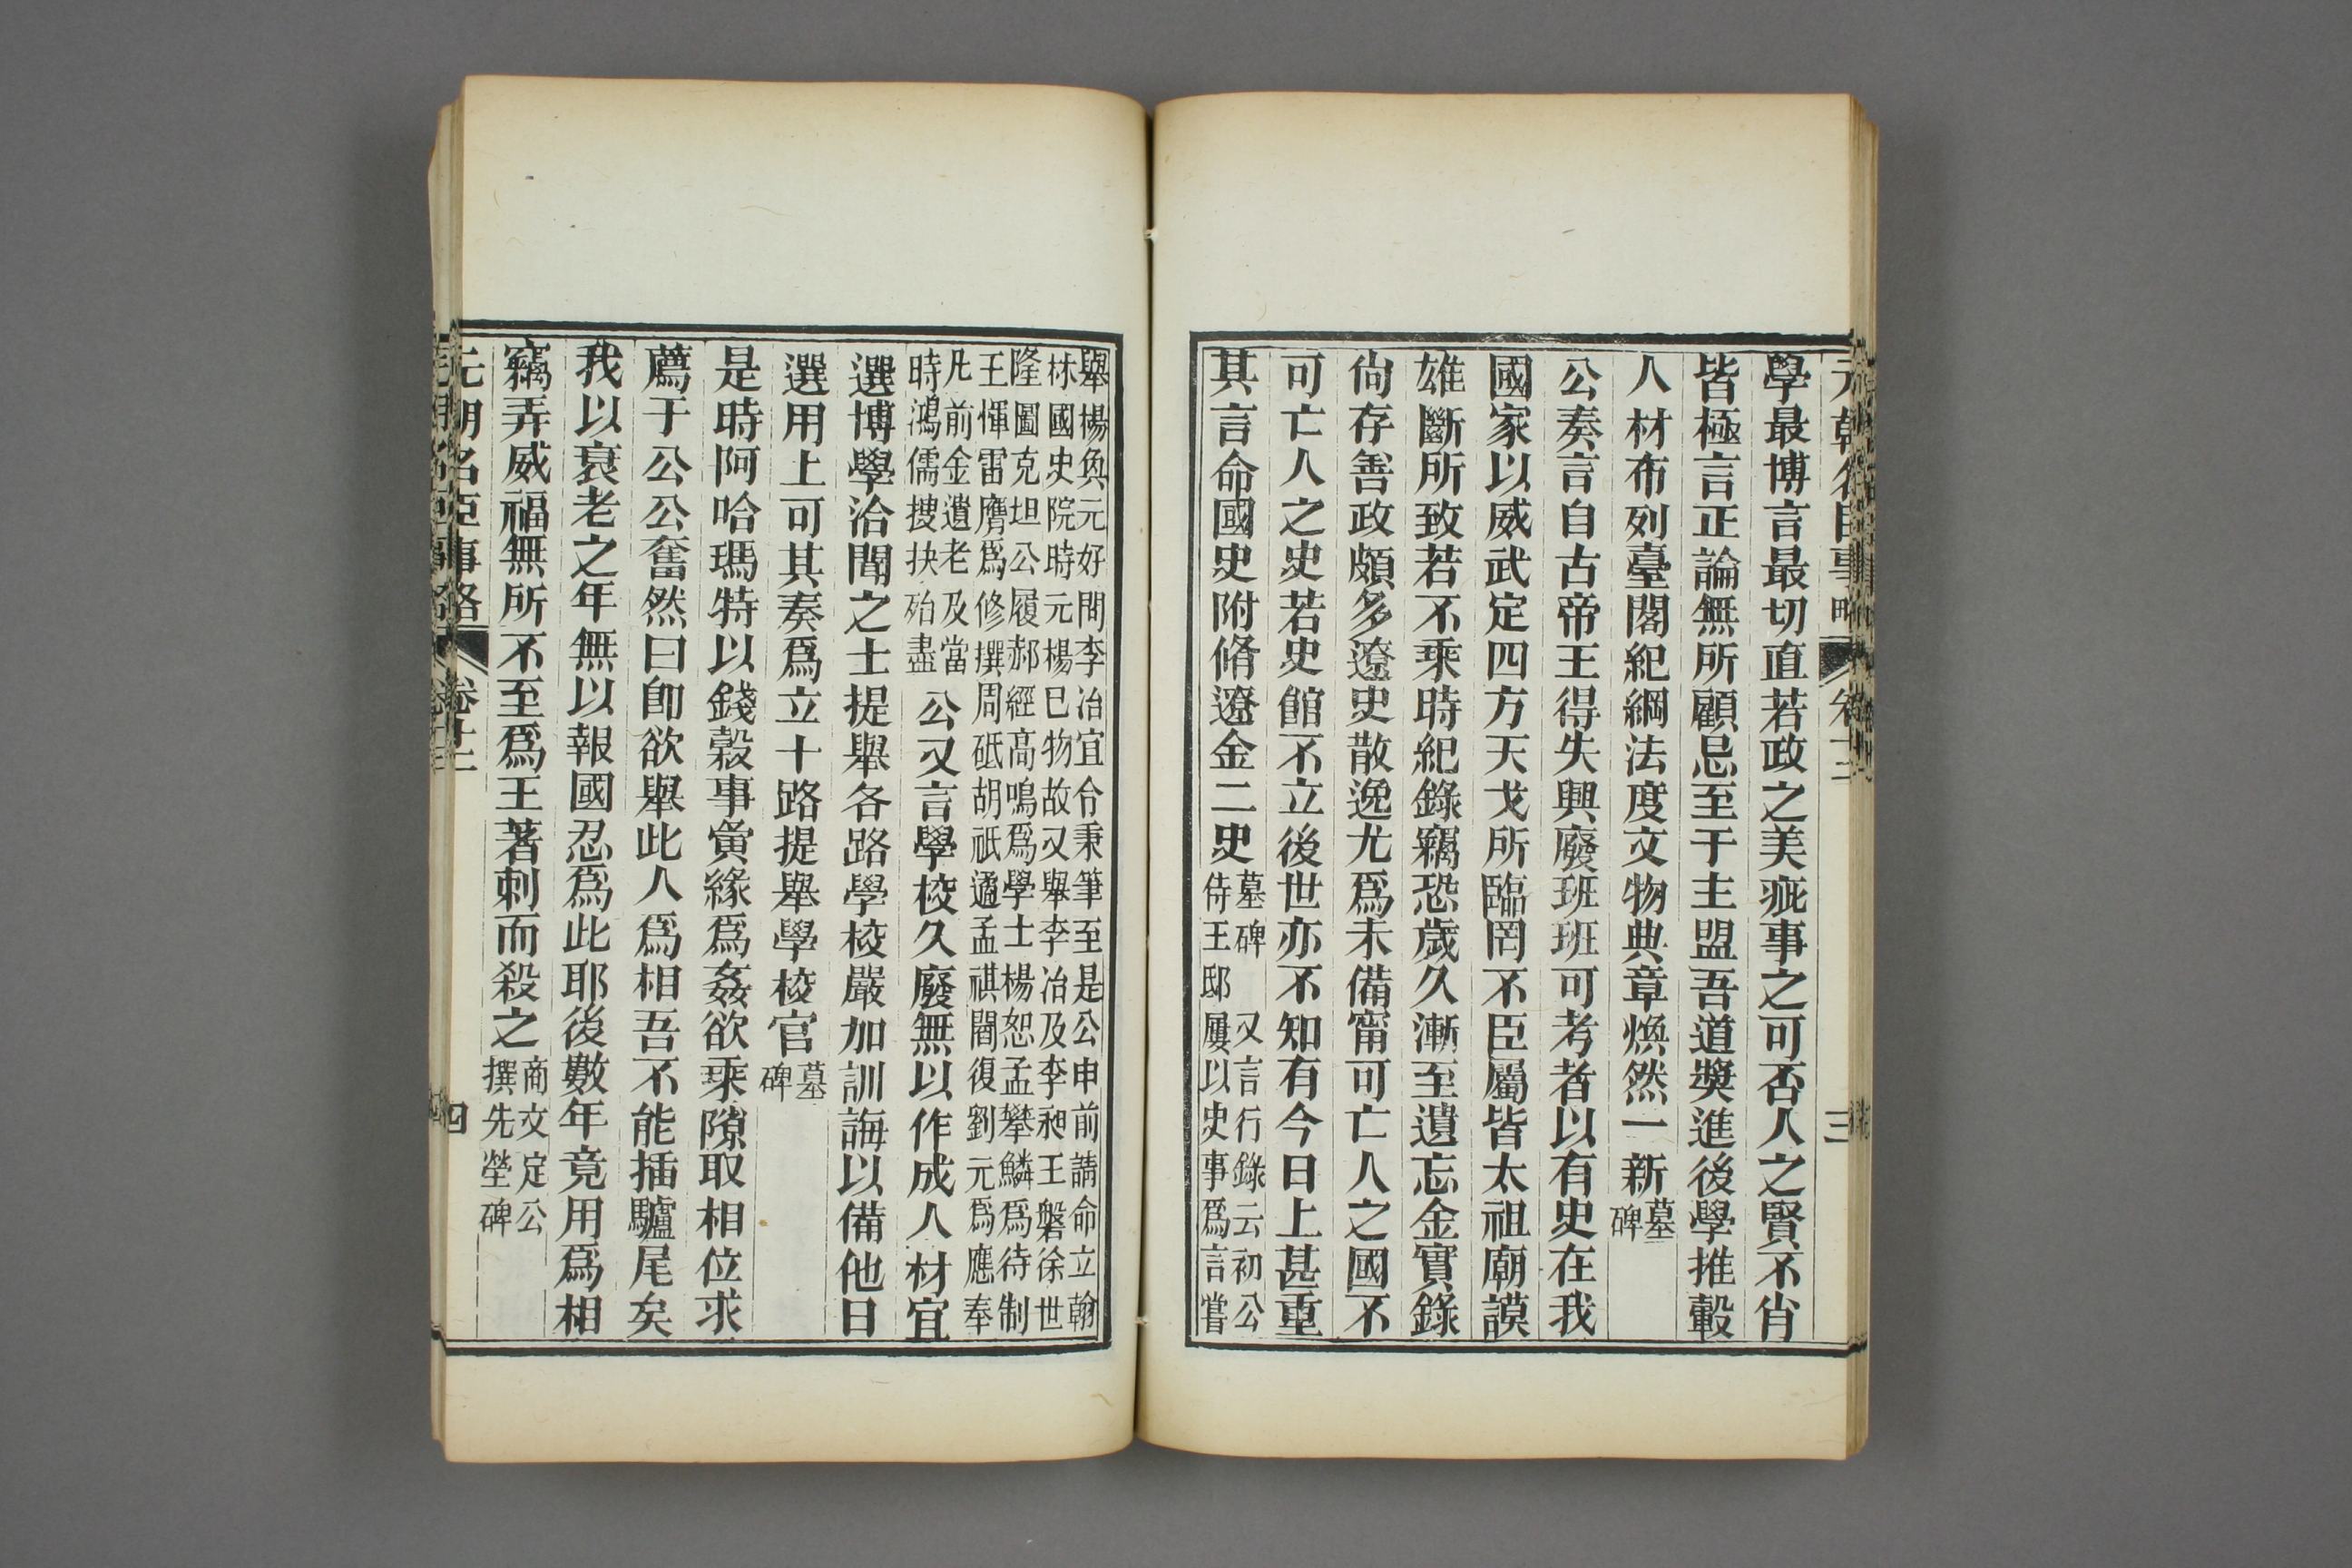 元朝名臣事略 卷十二 三
學最博言最切直若政之美疵事之可否人之賢不肖
皆極言正論無所顧忌至于主盟吾道獎進後學推轂
人材布列臺閣紀綱法度文物典章煥然一新墓碑
公奏言自古帝王得失興廢班班可考者以有史在我
國家以威武定四方天戈所臨罔不臣屬皆太祖廟謨
雄斷所致若不乘時紀錄竊恐歲久漸至遺忘金實錄
尙存善政頗多遼史散逸尤爲未備甯可亡人之國不
可亡人之史若史館不立後世亦不知有今日上甚重
其言命國史附脩遼金二史
墓碑 又言行錄云初公
侍王邸屢以史事爲言嘗
舉楊奐元好問李冶宜令秉筆至是公申前請命立翰
林國史院時元楊巳物故又舉李冶及李昶王磐徐世
隆圖克坦公履郝經高鳴爲學士楊恕孟攀鱗爲待制
王惲雷膺爲修撰周砥胡祇遹孟祺閻復劉元爲應奉
凡前金遺老及當
時鴻儒搜抉殆盡
公又言學校久廢無以作成人材宜
選博學洽聞之士提舉各路學校嚴加訓誨以備他日
選用上可其奏爲立十路提舉學校官墓碑
是時阿哈瑪特以錢穀事夤緣爲姦欲乘隙取相位求
薦于公公奮然曰卽欲舉此人爲相吾不能插驢尾矣
我以衰老之年無以報國忍爲此耶後數年竟用爲相
竊弄威福無所不至爲王著刺而殺之
商文定公
撰先塋碑
元朝名臣事略 卷十二 四